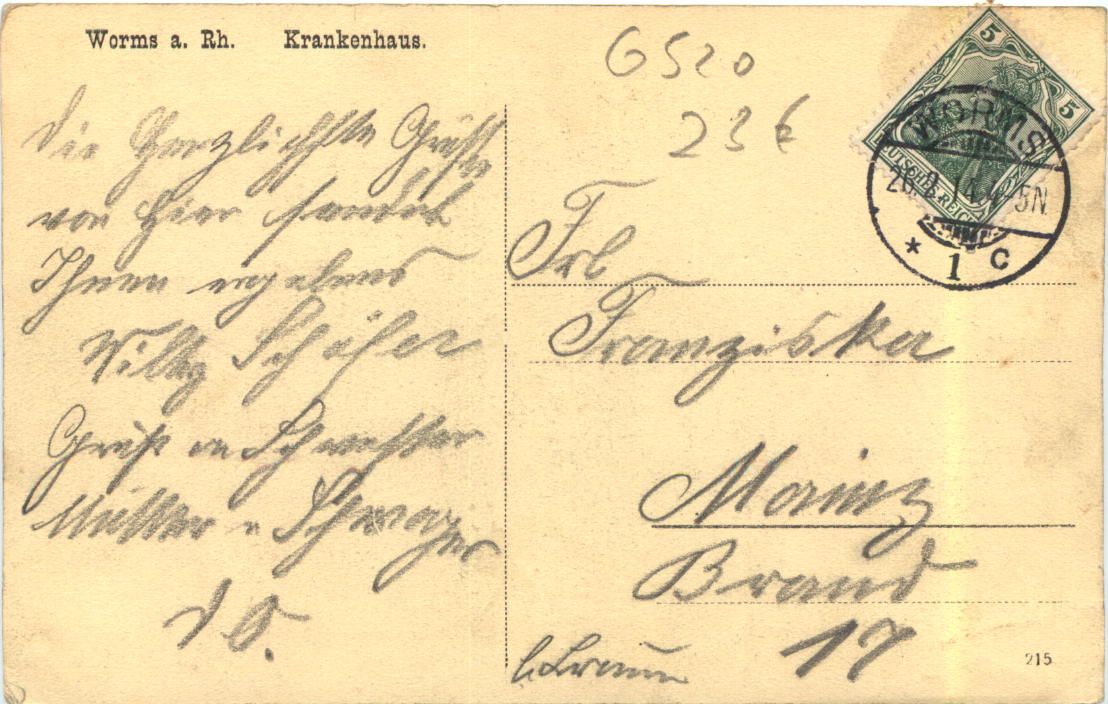 Worms a. Rh. Krankenhaus.
6520
23 €
5 5
DEUTSCHES REICH
WORMS
26.2.14.4-5N
* 1 c
Die Herzlichste Grüße
von hier sendet
Ihnen ergebens
Willy Schäfer
Gruß an Schwester
Mutter u Schwager
D O.
Frl
Franziska
Mainz
Brand
17
b. Braun
215